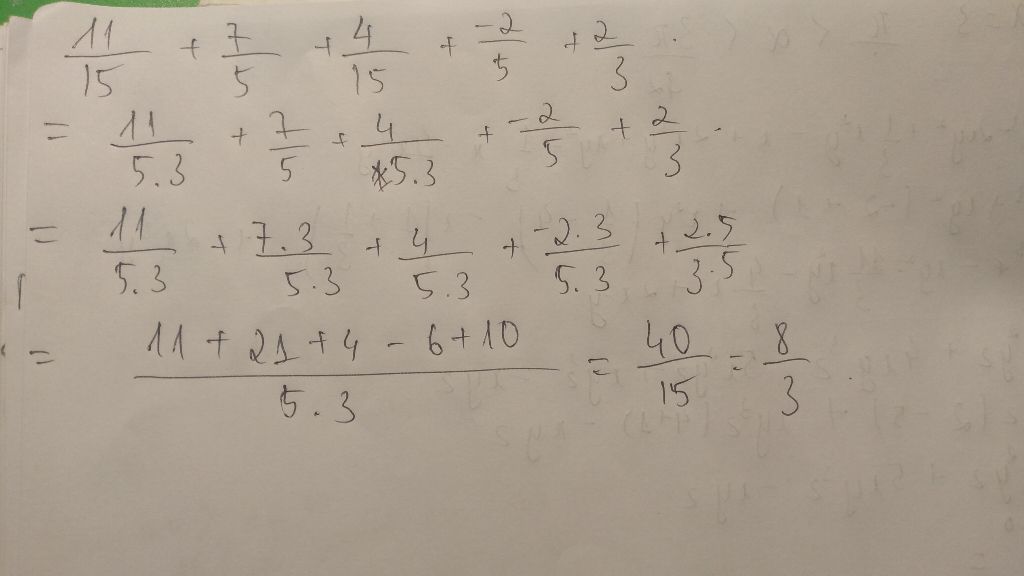 11/15 + 7/5 + 4/15 + -2/5 + 2/3 .
= 11/5.3 + 7/5 + 4/5.3 + -2/5 + 2/3 .
= 11/5.3 + 7.3/5.3 + 4/5.3 + -2.3/5.3 + 2.5/3.5
= 11 + 21 + 4 - 6 + 10/5.3 = 40/15 = 8/3 .